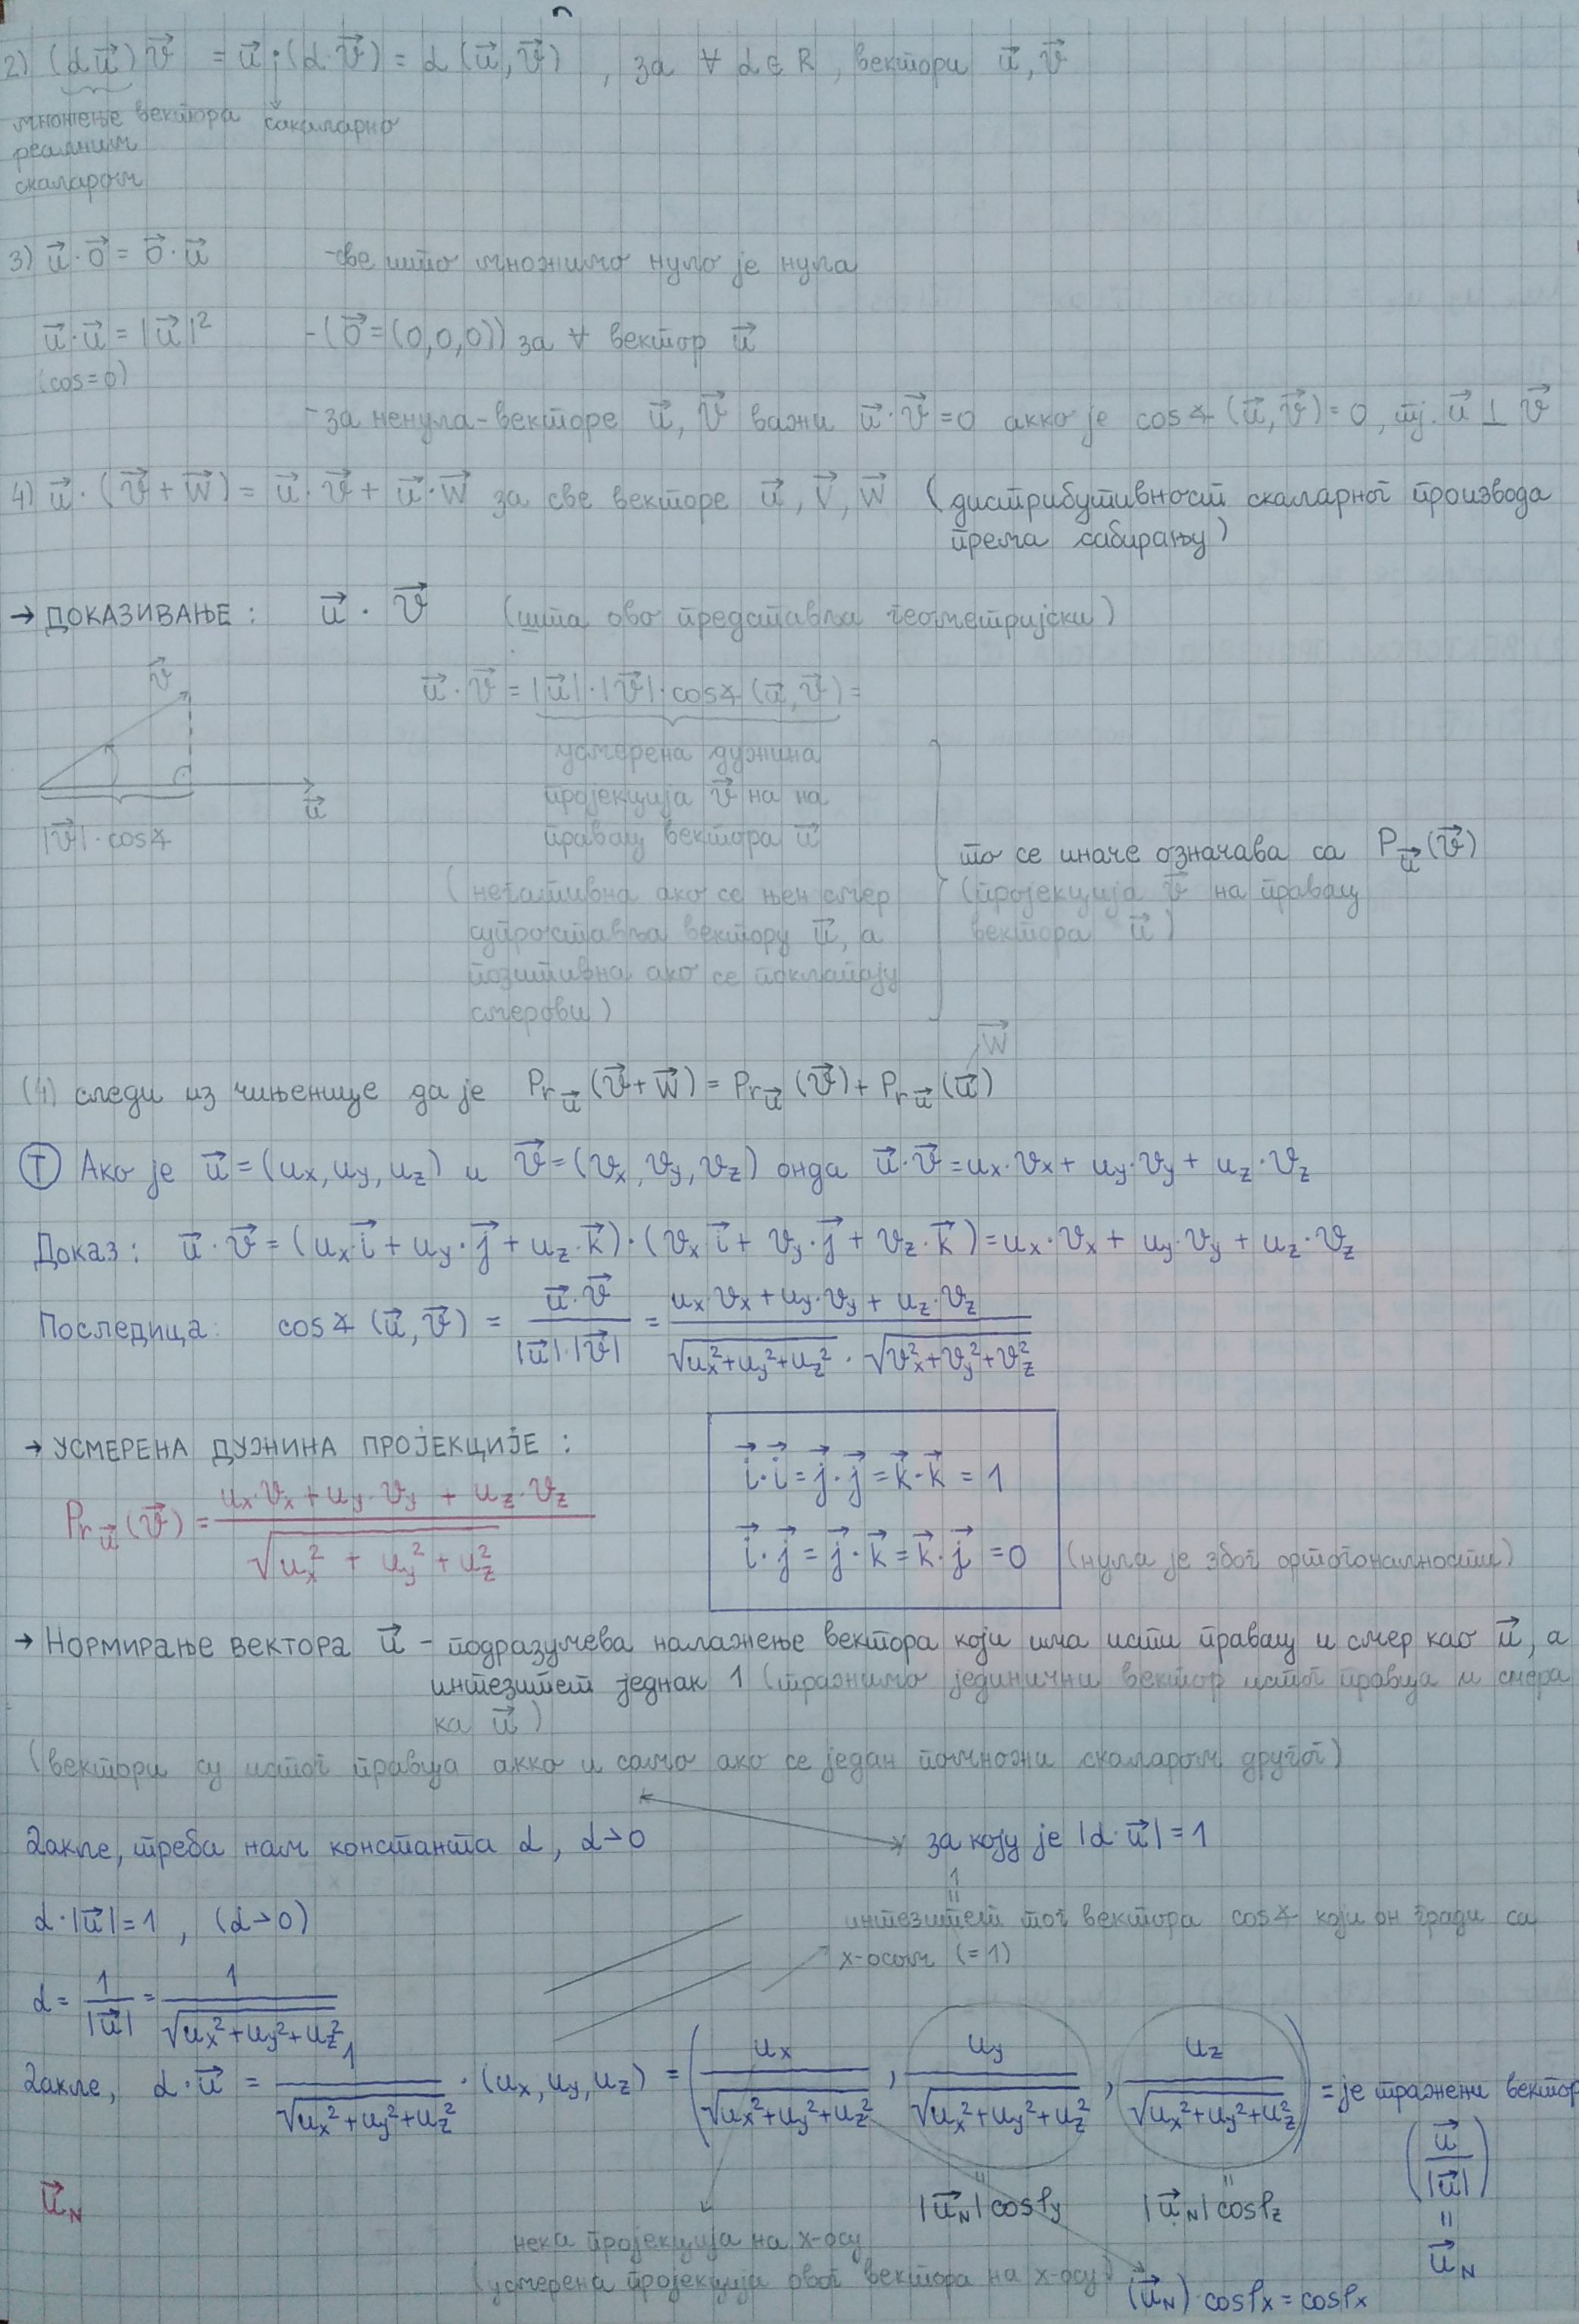 2) (α u⃗) v⃗ = u⃗ · (α · v⃗) = α (u⃗, v⃗) , за ∀ α ∈ R, вектори u⃗, v⃗
множење вектора скаларно
реалним
скаларом
3) u⃗ · 0⃗ = 0⃗ · u⃗ -све што множимо нулo је нула
u⃗ · u⃗ = |u⃗|² -(0⃗ = (0,0,0)) за ∀ вектор u⃗
(cos=0)
-за ненула-векторе u⃗, v⃗ важи u⃗ · v⃗ = 0 акко је cos∡(u⃗, v⃗) = 0, тј. u⃗ ⊥ v⃗
4) u⃗ · (v⃗ + w⃗) = u⃗ · v⃗ + u⃗ · w⃗ за све векторе u⃗, v⃗, w⃗ (дистрибутивност скаларног производа
према сабирању)
→ ДОКАЗИВАЊЕ: u⃗ · v⃗ (шта ово представља геометријски)
v⃗
u⃗ · v⃗ = |u⃗| · |v⃗| · cos∡(u⃗, v⃗) =
усмерена дужина
пројекција v⃗ на на
правац вектора u⃗
u⃗
|v⃗| · cos∡
то се иначе означава са P u⃗ (v⃗)
(негативна ако се њен смер
(пројекција v⃗ на правац
супроставља вектору u⃗, а
вектора u⃗)
позитивна ако се поклапају
смерови)
w⃗
(4) следи из чињенице да је Pr u⃗ (v⃗ + w⃗) = Pr u⃗ (v⃗) + Pr u⃗ (u⃗)
Ⓣ Ако је u⃗ = (ux, uy, uz) и v⃗ = (vx, vy, vz) онда u⃗ · v⃗ = ux · vx + uy · vy + uz · vz
Доказ: u⃗ · v⃗ = (ux i⃗ + uy · j⃗ + uz · k⃗) · (vx i⃗ + vy · j⃗ + vz · k⃗) = ux · vx + uy · vy + uz · vz
Последица: cos∡(u⃗, v⃗) = u⃗ · v⃗ / |u⃗| · |v⃗| = ux · vx + uy · vy + uz · vz / √ux²+uy²+uz² · √vx²+vy²+vz²
→ УСМЕРЕНА ДУЖИНА ПРОЈЕКЦИЈЕ:
Pr u⃗ (v⃗) = ux · vx + uy · vy + uz · vz / √ux² + uy² + uz²
i⃗ · i⃗ = j⃗ · j⃗ = k⃗ · k⃗ = 1
i⃗ · j⃗ = j⃗ · k⃗ = k⃗ · j⃗ = 0 (нула је због ортогоналности)
→ НОРМИРАЊЕ ВЕКТОРА u⃗ - подразумева налажење вектора који има исти правац и смер као u⃗, а
интезитет једнак 1 (тражимо јединични вектор истог правца и смера
ка u⃗)
(вектори су истог правца акко и само ако се један помножи скаларом другог)
Дакле, треба нам константа α, α > 0 за коју је |α · u⃗| = 1
1
=
α · |u⃗| = 1 , (α > 0)
интезитет тог вектора cos∡ који он гради са
x-осом (=1)
α = 1 / |u⃗| = 1 / √ux²+uy²+uz²
Дакле, α · u⃗ = 1 / √ux²+uy²+uz² · (ux, uy, uz) = (ux / √ux²+uy²+uz² , uy / √ux²+uy²+uz² , uz / √ux²+uy²+uz²) = је тражени вектор
(u⃗ / |u⃗|)
=
u⃗N
= =
u⃗N
|u⃗N| cosρy |u⃗N| cosρz
нека пројекција на x-осу
(усмерена пројекција овог вектора на x-осу)
(u⃗N) · cosρx = cosρx